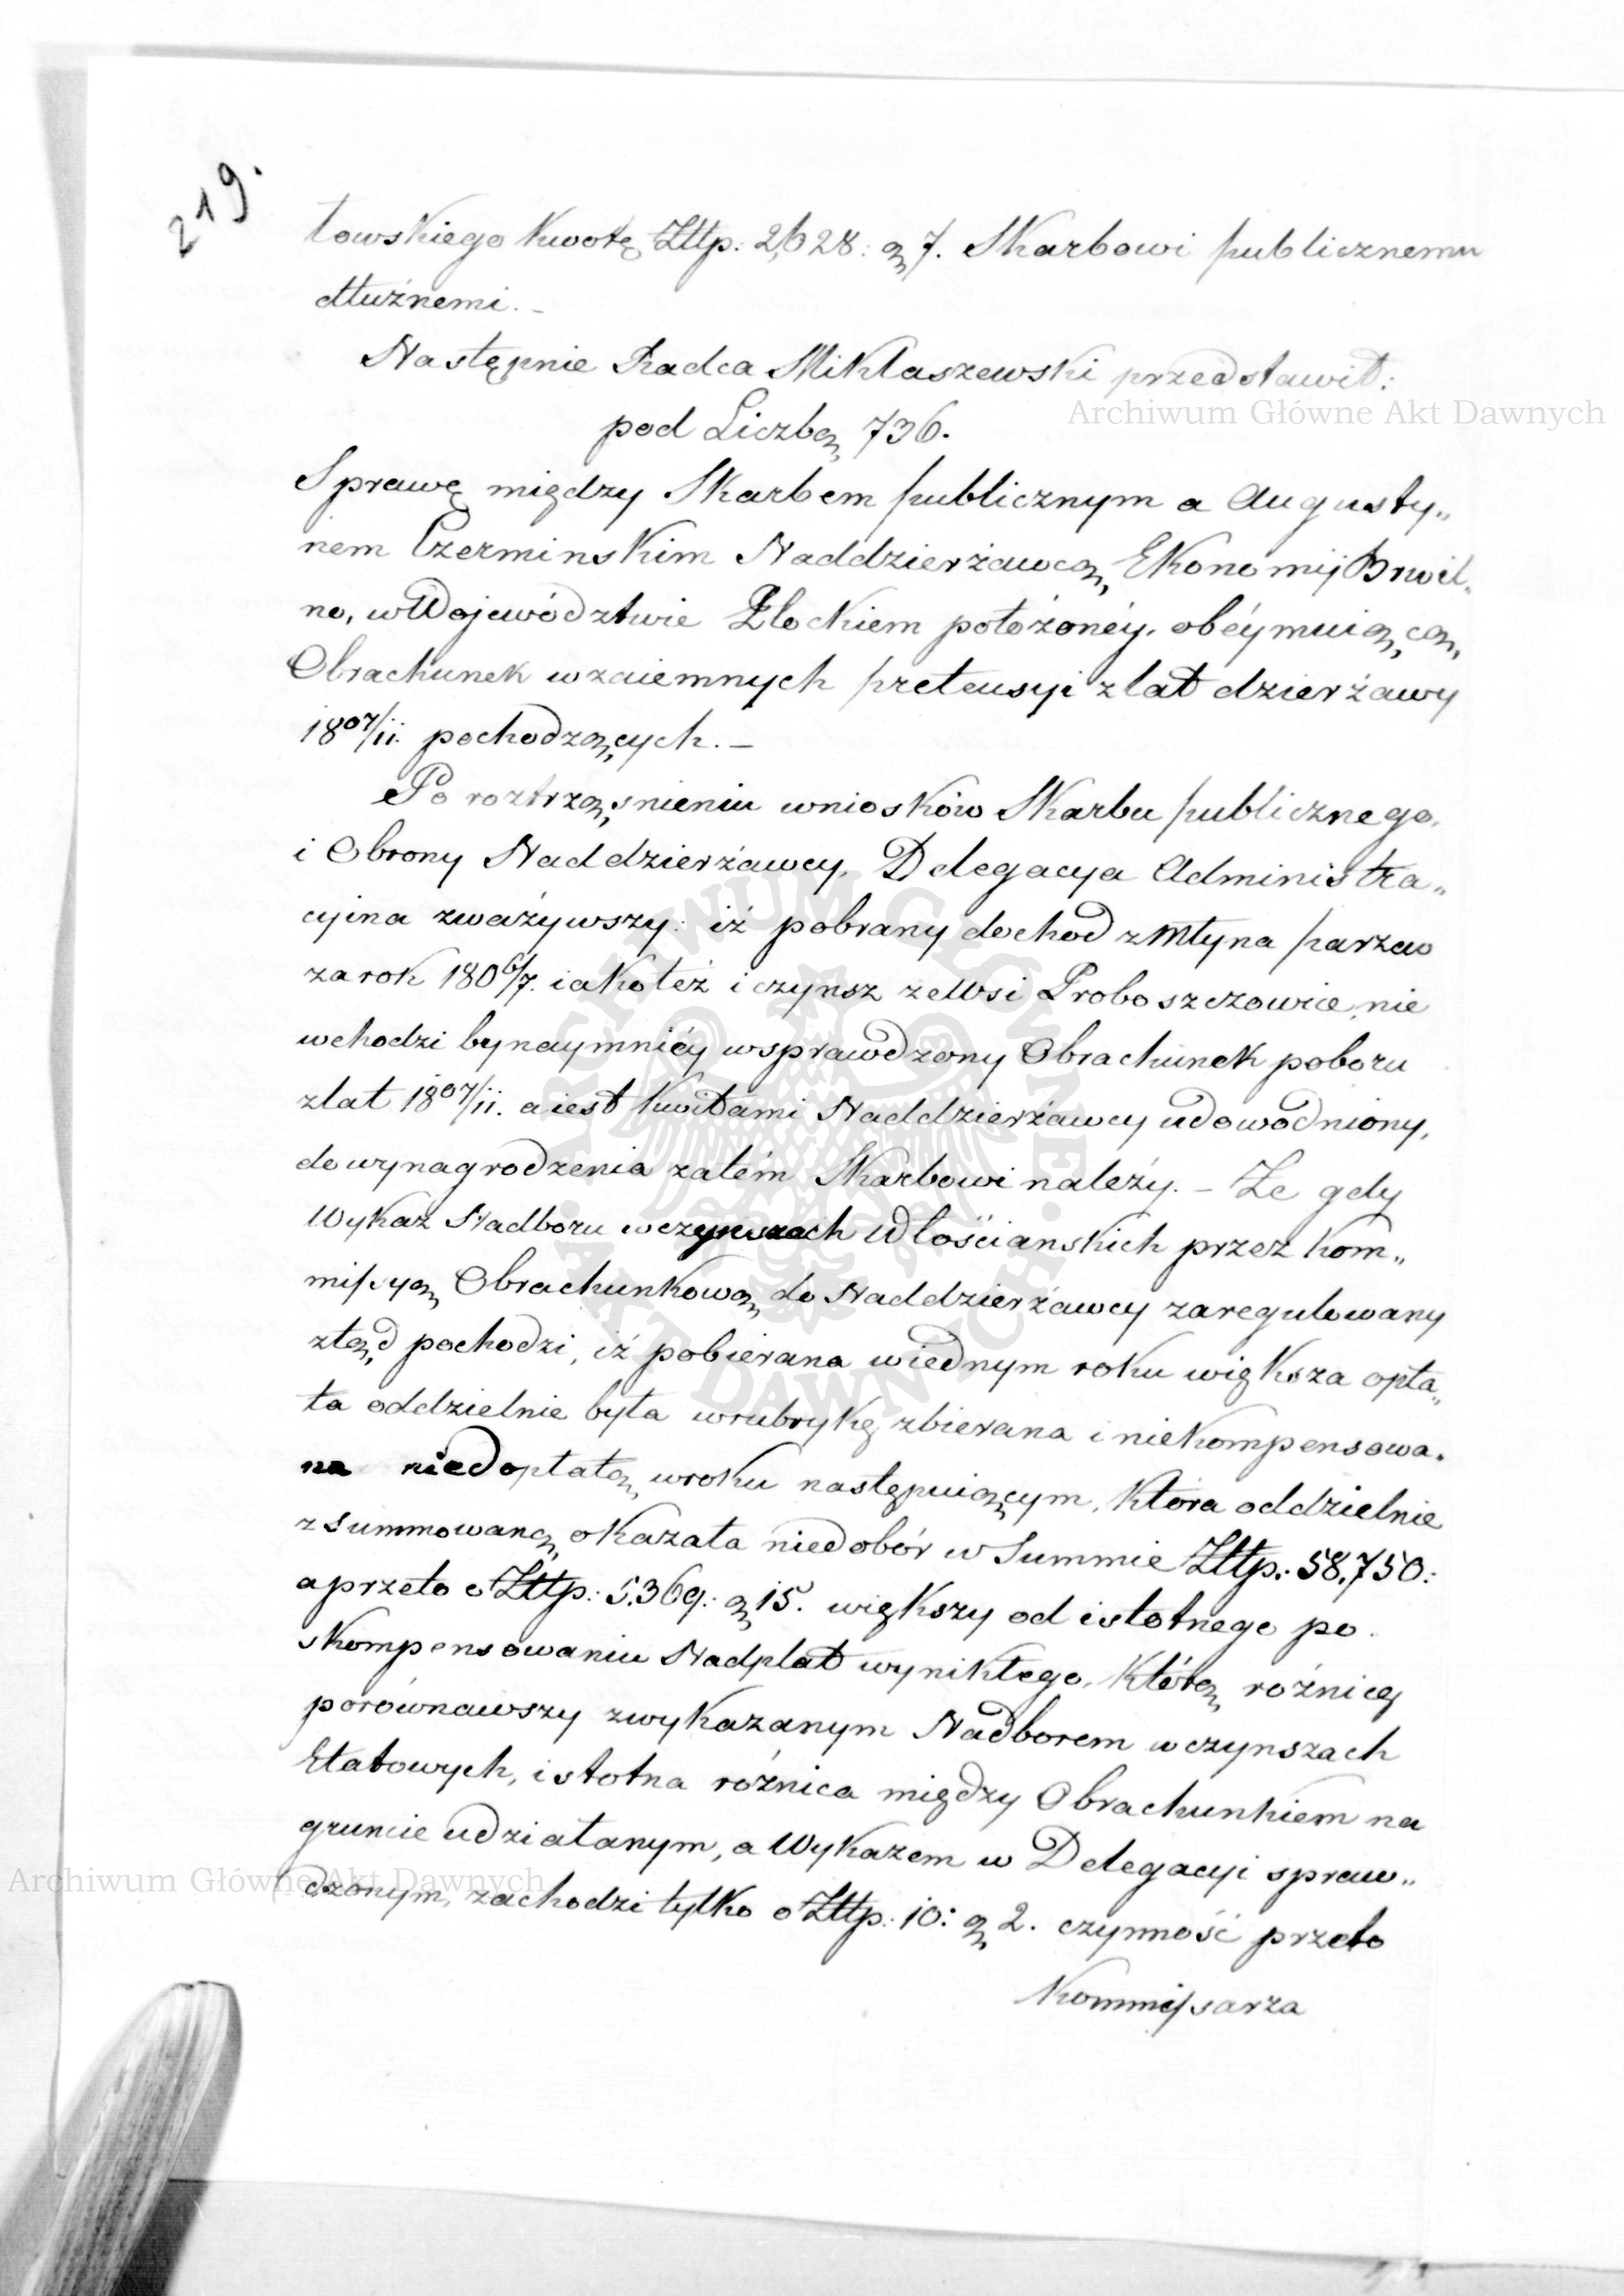 219.
towskiego kwotę Złłp: 2,628: g 7. Skarbowi publicznemu
dłużnemi. –
Następnie Radca Miklaszewski przedstawił:
Archiwum Główne Akt Dawnych
pod Liczbą 736.
Sprawę między Skarbem publicznym a Augusty„
nem Czerminskim Naddzierżawcą Ekonomij Brwil„
no, w Województwie Płockiem położoney, obéymuiącą,
Obrachunek wzaiemnych pretensyi z lat dzierżawy
1807/11. pochodzących. –
Po roztrząśnieniu wniosków Skarbu publicznego,
i Obrony Naddzierżawcy, Delegacya Administra„
cyina zważywszy: iż pobrany dochod z Młyna parzeo
za rok 1806/7. iakoteż i czynsz ze Wsi Proboszczowice, nie
wchodzi bynaymniéy w sprawdzony Obrachunek poboru
z lat 1807/11. a iest kwitami Naddzierżawcy udowodniony,
do wynagrodzenia zatém Skarbowi należy. – Ze gdy
Wykaz Nadboru w czynszach Włościanskich przez Kom„
missyą Obrachunkową do Naddzierżawcy zaregulowany
ztąd pochodzi, iż pobierana w iednym roku większa opła„
ta oddzielnie była w rubrykę zbierana i niekompensowa„
na niedopłatą w roku następuiącym, która oddzielnie
zsummowaną okazała niedobór w Summie Złłp: 58,750:
a przeto o Złłp: 5.369: g 15. większy od istotnego po
skompensowaniu Nadpłat wynikłego, którą różnicę
porównawszy z wykazanym Nadborem w czynszach
Etatowych, istotna różnica między Obrachunkiem na
gruncie udziałanym, a Wykazem w Delegacyi spraw„
Archiwum Główne Akt Dawnych
dzonym, zachodzi tylko o Złłp: 10: g 2. czynność przeto
Kommissarza
ARCHIWUM GŁÓWNE AKT DAWNYCH